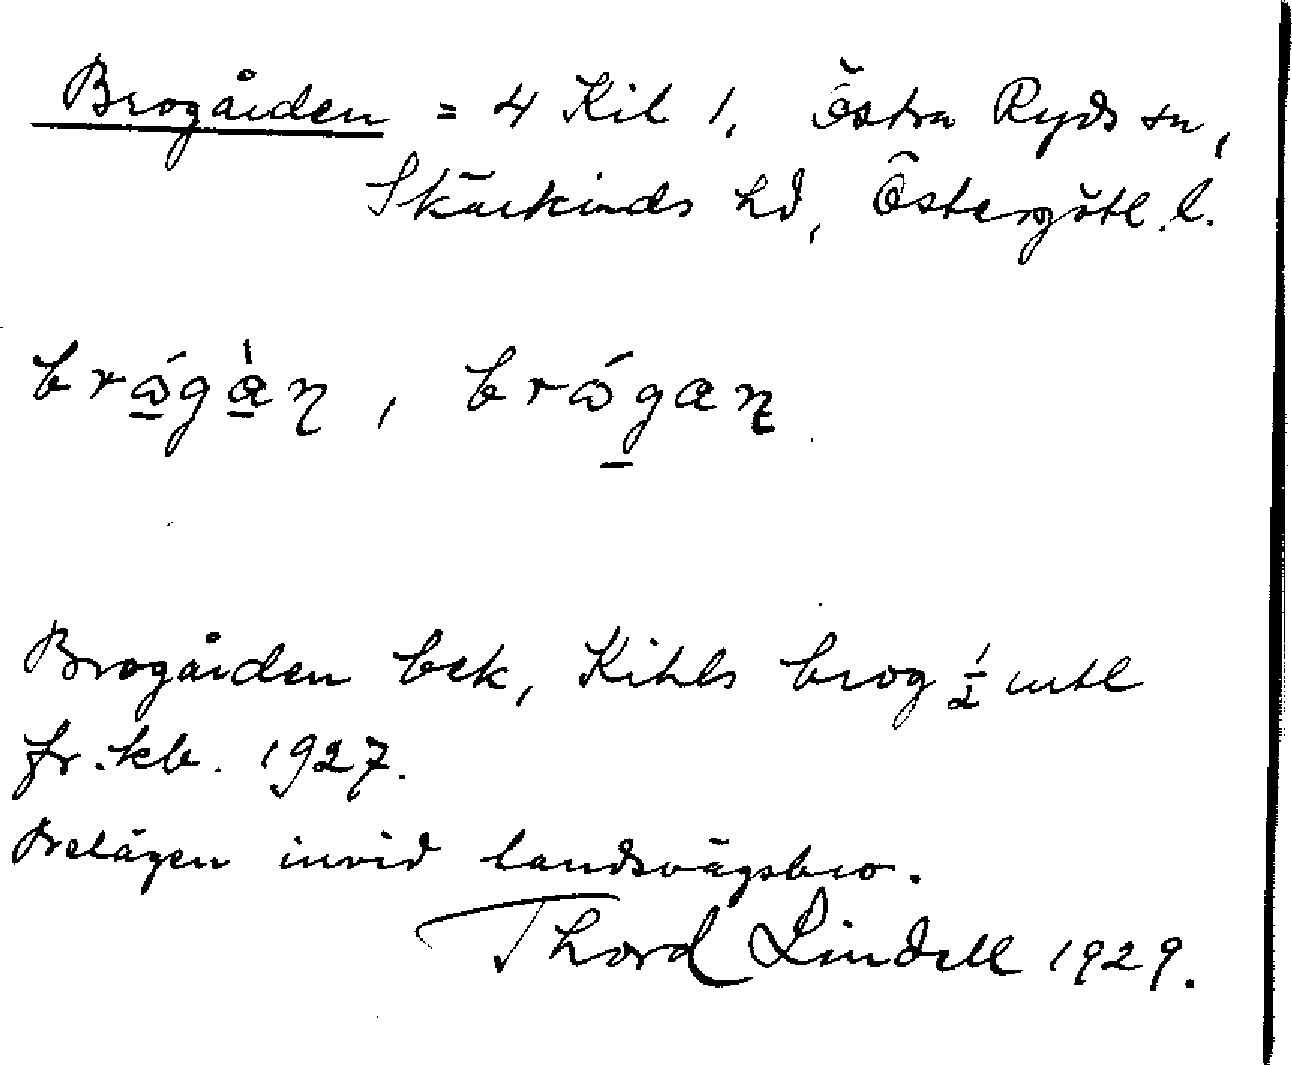 Brogården = 4 Kil 1, Östra Ryds sn,
Skärkinds hd, Östergötl. l.
brώ̲gὰ̲ɳ, brώg̲aɳ
Brogården bek, Kihls brog ½ mtl
fr. kb. 1927.
Belägen invid landsvägsbro.
Thord Lindell 1929.